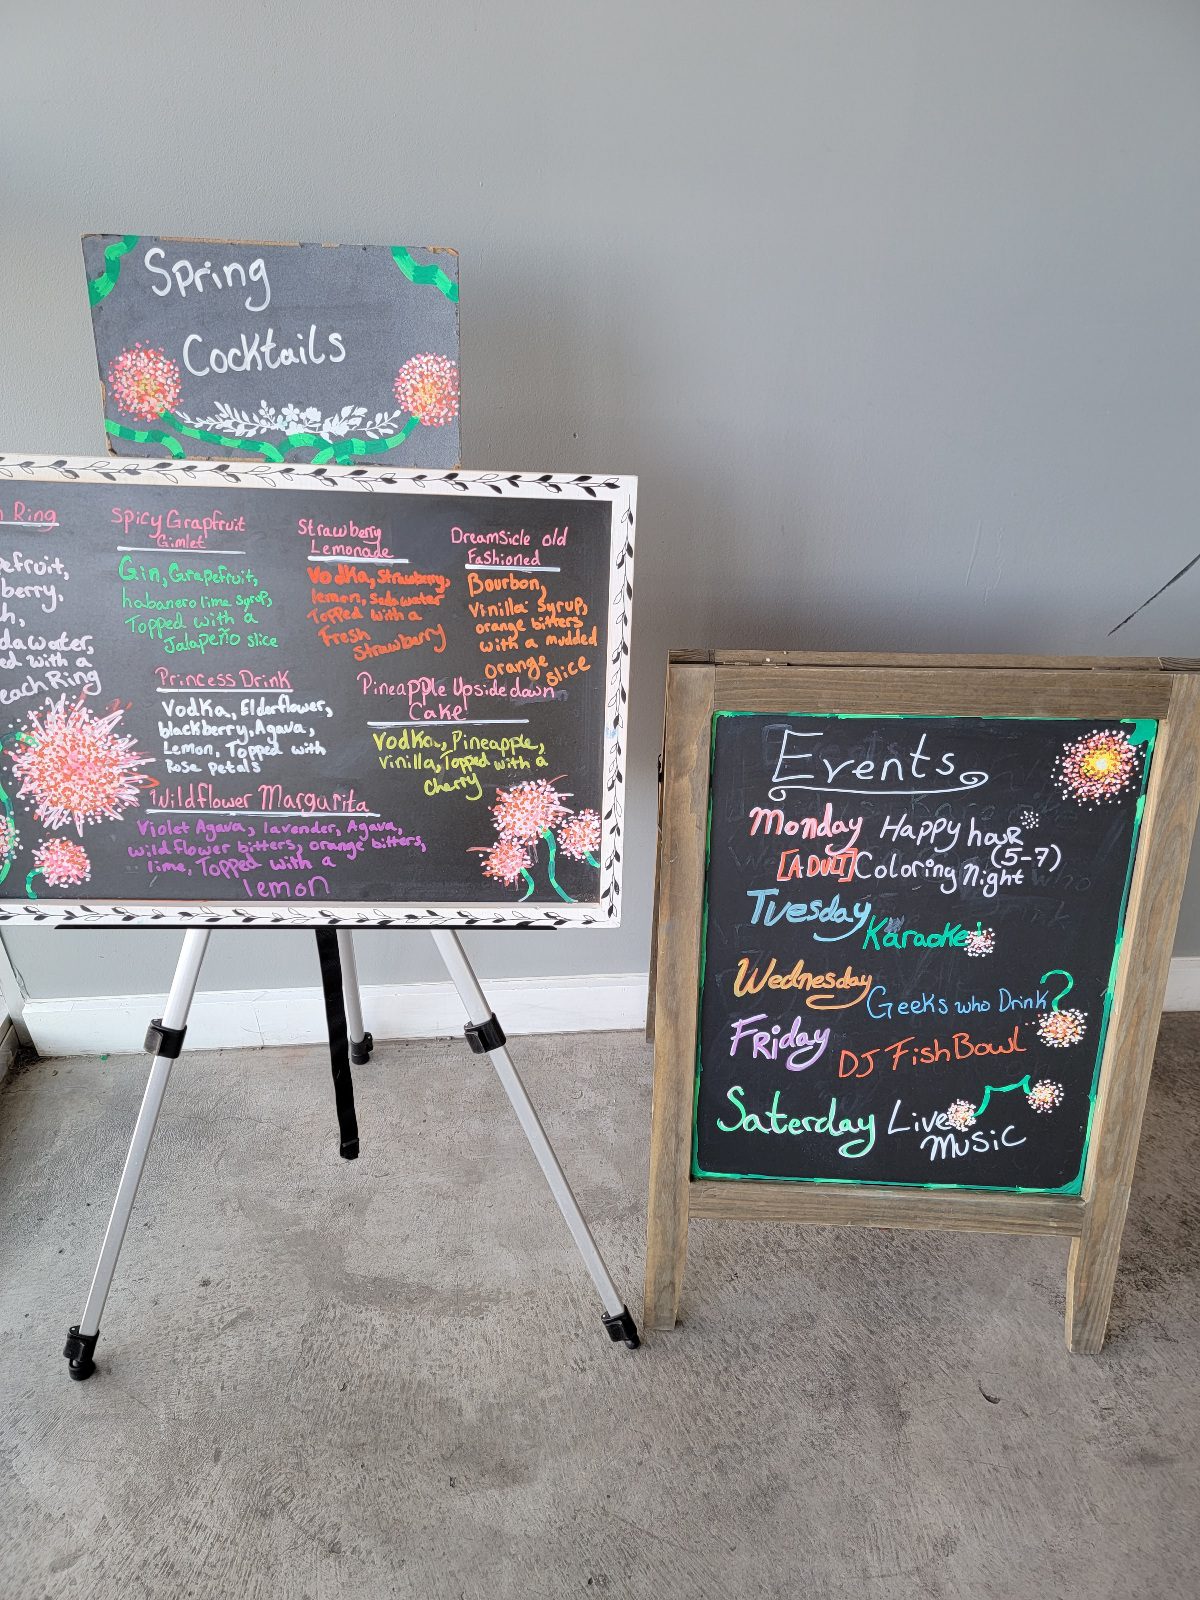 Spring
Cocktails
Ring
Spicy Grapfruit
Gimlet
Gin, Grapefruit,
habanero lime syrup,
Topped with a
Jalapeño slice
Strawberry
Lemonade
Vodka, Strawberry,
lemon, Soda water
Topped with a
Fresh
Strawberry
Dreamsicle old
Fashioned
Bourbon,
Vinilla syrup,
orange bitters
with a mudded
orange slice
efruit,
berry,
h,
da water,
ed with a
each Ring
Princess Drink
Vodka, Elderflower,
blackberry, Agava,
Lemon, Topped with
Rose petals
Pineapple Upsidedawn
Cake
Vodka, Pineapple,
vinilla, Topped with a
cherry
Wildflower Margurita
Violet Agava, lavender, Agava,
wild flower bitters, orange bitters,
lime, Topped with a
lemon
Events
Monday Happy hour
(5-7)
[ADULT] Coloring Night
Tuesday Karaoke!
Wednesday Geeks who Drink?
Friday DJ FishBowl
Saterday Live
Music